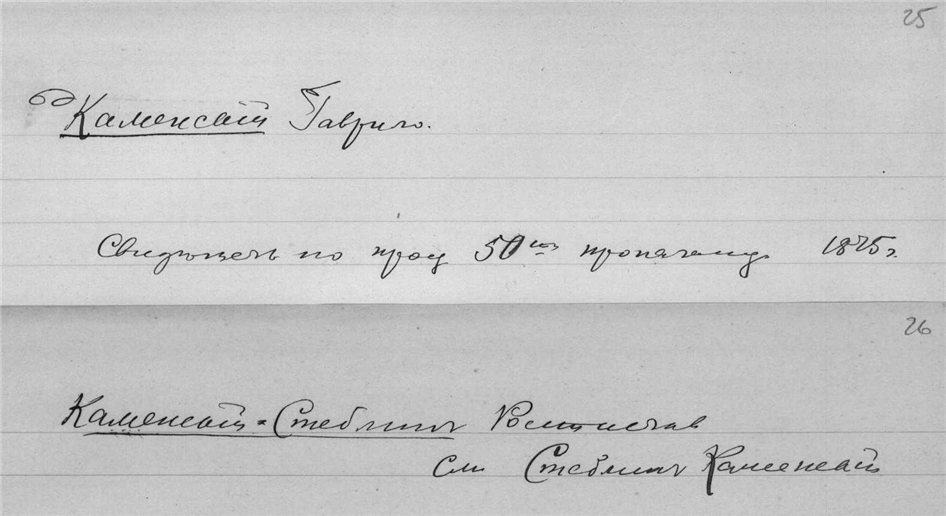 25
Каменскій Гаврило.
Свидѣтель по проц 50ти пропаганд. 1875 г.
26
Каменскій-Стеблинъ Ростислав
см Стеблинъ Каменскій